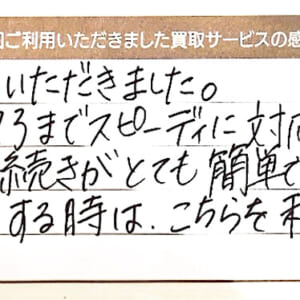 回ご利用いただきました買取サービスの感
いただきました。
までスピーディに対応
続きがとても簡単で
する時は、こちらを利